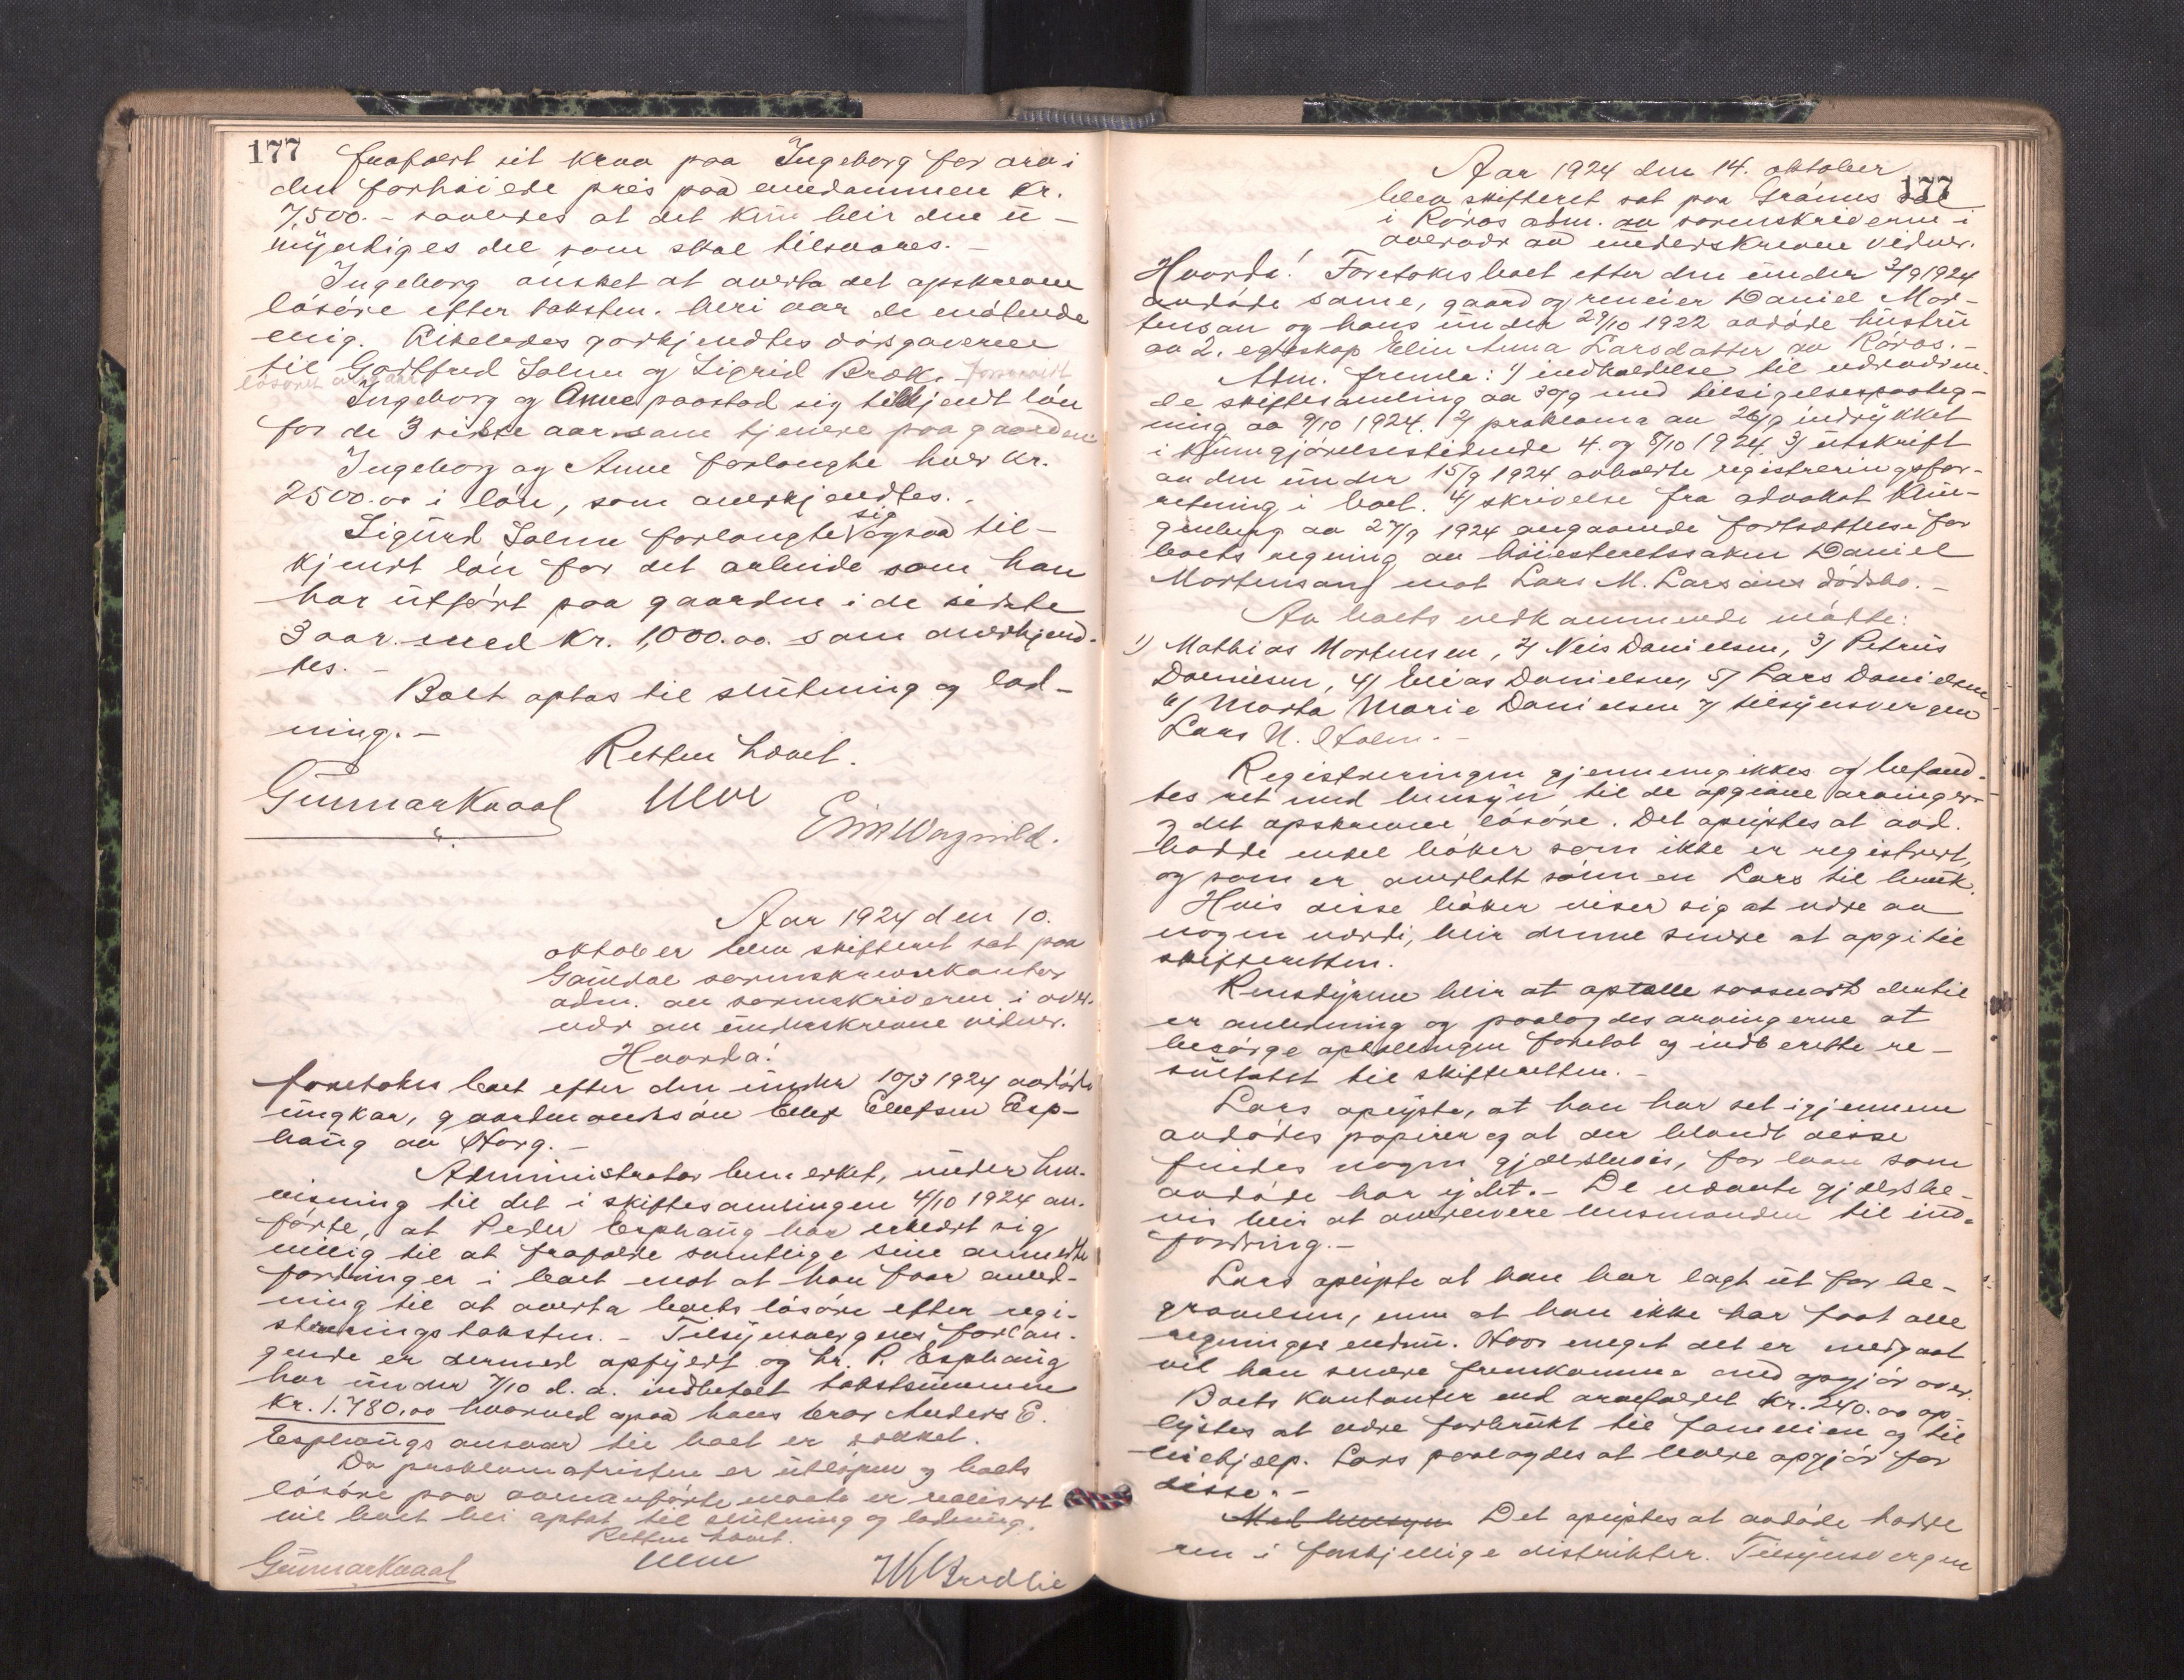 177
frafaldt sit krav paa Ingeborg for arv i
den forhøiede pris paa eiendommen kr.
7,500.- saaledes at det kun blir den u-
myndiges del som skal tilsvares.-
Ingeborg ønsket at overta det opskrevne
løsøre efter taksten. Heri var de møtende
enig. Likeledes godkjendtes dødsgaverne
til Gottfred Solem og Sigrid Bræk.
Ingeborg og Anne paastod sig tilkjendt løn
for de 3 sidste aar som tjenere paa gaarden.
Ingeborg og Anne forlangte hver kr.
2500.00 i løn, som anerkjendtes.-
Sigurd Solem forlangte sig ogsaa til-
kjendt løn for det arbeide som han
har utført paa gaarden i de sidste
3 aar. med kr. 1,000.00. som anerkjend-
tes.-
Boet optas til slutning og lod-
ning.-
Retten hævet.
Gunnar Kvaal
Aar 1924 den 10.
oktober blev skifteret sat paa
Gauldal sorenskriverkontor
adm. av sorenskriveren i over-
vær av underskrevne vidner.
Hvorda!
foretokes boet efter den under 10/3 1924 avdøde
ungkar, gaardmandsøn Elef Elefsen Esp-
haug av Horg.-
Administrator bemerket, under hen-
visning til det i skiftesamlingen 4/10 1924 an-
førte, at Peder Esphaug har erklært sig
villig til at frafalde samtlige sine anmeldte
fordringer i boet mot at han faar anled-
ning til at overta boets løsøre efter regi-
streringstaksten.- Tilsynsvergens forlan-
gende er dermed opfyldt og hr. P. Esphaug
har under 7/10 d. a. indbetalt takstsummen
kr. 1.780.00 hvorved ogsaa hans bror Anders E.
Esphaugs ansvar til boet er dækket.
Da proklamafristen er utløpen og boets
løsøre paa ovenanførte maate er realisert
vil boet bli optat til slutning og lodning.
Retten hævet.
Gunnar Kvaal
177
Aar 1924 den 14. oktober
blev skifteret sat paa Gramus sal
i Røros adm. av sorenskriveren i
overvær av underskrevne vidner.
Hvorda! Foretokes boet efter den under 2/9 1924
avdøde same, gaard og reneier Daniel Mor-
tenson og hans under 29/10 1922 avdøde hustru
av 2. egteskap Elin Anna Larsdatter av Røros.-
Adm. fremla: 1/ indkaldelse til nærværen-
de skiftesamling av 30/9 med tilsigelsespaateg-
ning av 9/10 1924. 2/ proklama av 26/9 indrykket
i Kunngjørelsestidende 4. og 8/10 1924. 3/ utskrift
av den under 15/9 1924 avholdte registreringsfor-
retning i boet. 4/ skrivelse fra advokat Klin-
genberg av 27/9 1924 angaaende fortsættelse for
boets regning av høiesteretssaken Daniel
Mortenson mot Lars M. Larsens dødsbo.-
Av boets vedkommende møtte:
1) Mathias Mortensen, 2/ Neis Danielsen, 3/ Petrus
Danielsen, 4/ Elias Danielsen, 5/ Lars Danielsen
6/ Marta Marie Danielsen 7/ tilsynsvergen
Lars N. Holm.-
Registreringen gjennemgikkes og befand-
tes ret med hensyn til de opgivne arvinger
og det opskrevne løsøre. Det oplystes at avd.
hadde endel bøker som ikke er registrert,
og som er overlatt sønnen Lars til bruk.
Hvis disse bøker viser sig at være av
nogen værdi, blir denne senere at opgi til
skifteretten.
Rensdyrene blir at optælle saasnart dertil
er anledning og paalagdes arvingerne at
besørge optællingen foretat og indberette re-
sultatet til skifteretten.-
Lars oplyste, at han har set igjennem
avdødes papirer og at der blandt disse
findes nogen gjeldsbevis, for laan som
avdøde har ydet.- De nævnte gjeldsbe-
vis blir at overlevere lensmanden til ind-
fordring.-
Lars oplyste at han har lagt ut for be-
gravelsen, men at han ikke har faat alle
regninger endnu. Hvor meget det er medgaat
vil han senere fremkomme med opgjør over.
Boets kontanter ved arvefaldet kr. 240.00 op-
lystes at være forbrukt til familien og til
liehjælp. Lars paalagdes at levere opgjør for
disse.-
Med hensyn Det oplystes at avdøde hadde
ren i forskjellige distrikter. Tilsynsvergen